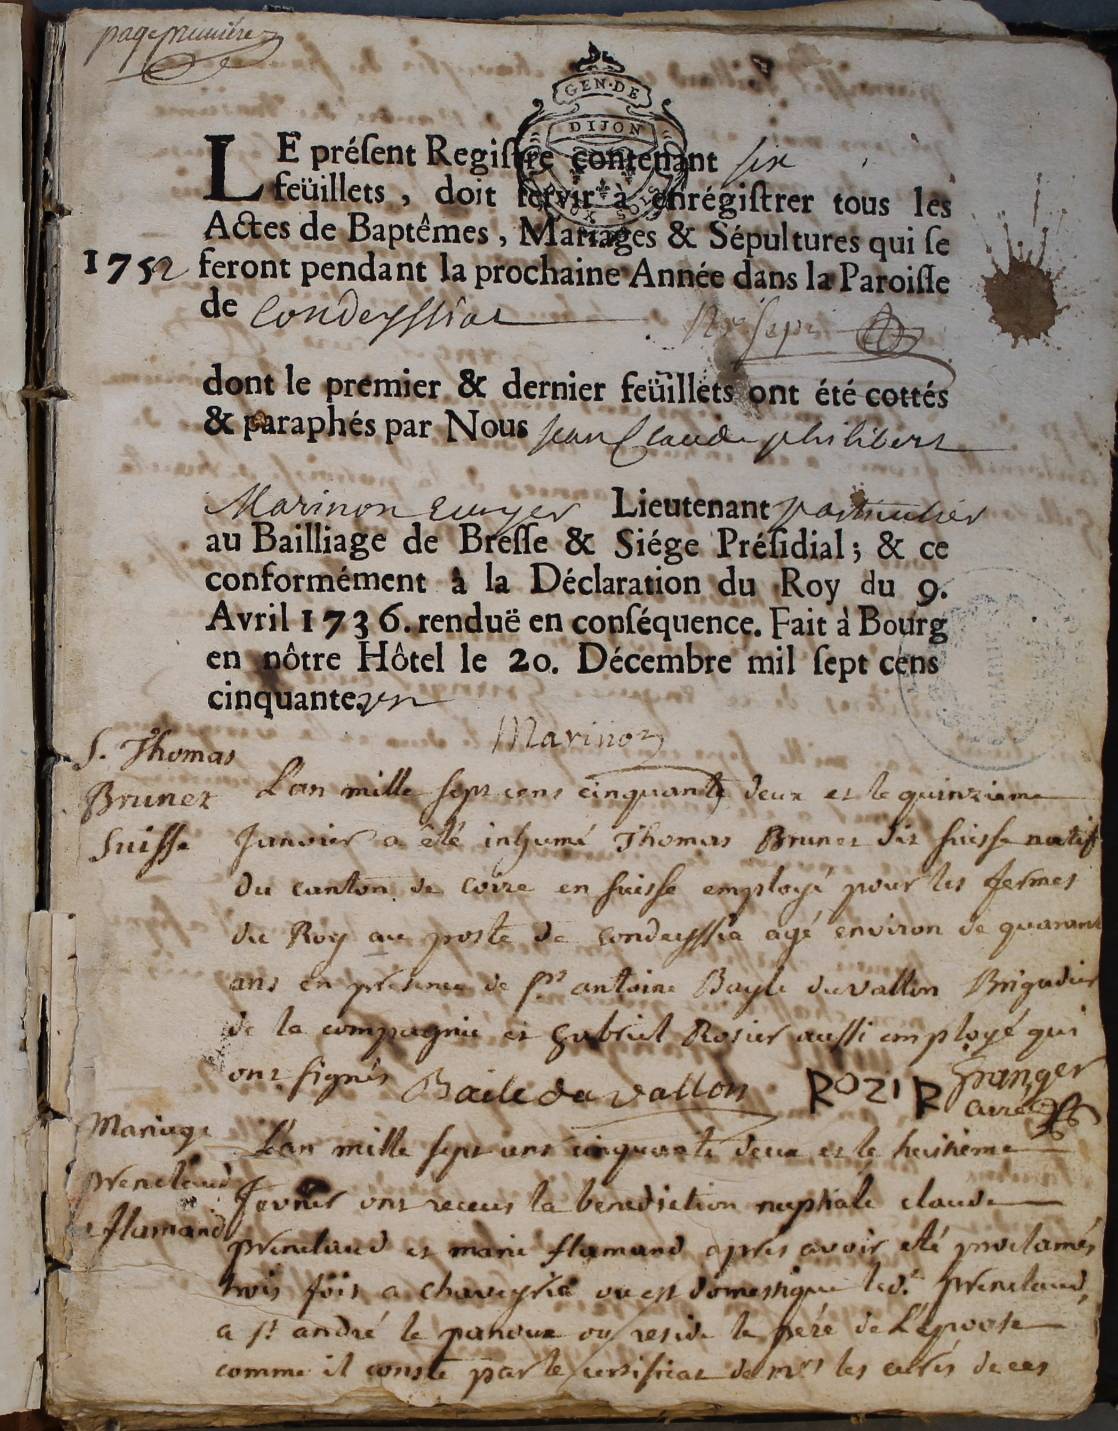 page premiere
GEN·DE
DIJON
LE préſent Regiſtre contenant six
feüillets, doit ſervir à enrégiſtrer tous les
Actes de Baptêmes, Mariages & Sépultures qui ſe
1752 feront pendant la prochaine Année dans la Paroiſſe
de Condeyssiat
dont le premier & dernier feüillets ont été cottés
& paraphés par Nous Jean Claude philibert
Marinon Ecuyer Lieutenant particulier
au Bailliage de Breſſe & Siége Préſidial; & ce
conformément à la Déclaration du Roy du 9.
Avril 1736. renduë en conſéquence. Fait à Bourg
en nôtre Hôtel le 20. Décembre mil ſept cens
cinquante un
Marinon
S. Thomas
Brunet
Suisse
L'an mille sept cens cinquante deux et le quinzieme
Janvier a été inhumé Thomas Brunet dit suisse natif
du canton de coire en suisse employé pour les fermes
du Roy au poste de condeyssia agé environ de quarante
ans en presence de sr antoine Bayle duvallon Brigadier
de la compagnie et gabriel Rosier aussi employé qui
ont signés Baile du vallon ROZIR Granger
curé
Mariage
preneloud
e flamand
L'an mille sept cens cinquante deux et le huitieme
Fevrier ont receus la benediction nuptiale claude
preneloud et marie flamand après avoir été proclamés
trois fois a chaveyria ou est domestique led.t preneloud,
a st andré le panoux ou reside le pere de L'epouse
comme il conste par le certificat de mrs les curés de ces